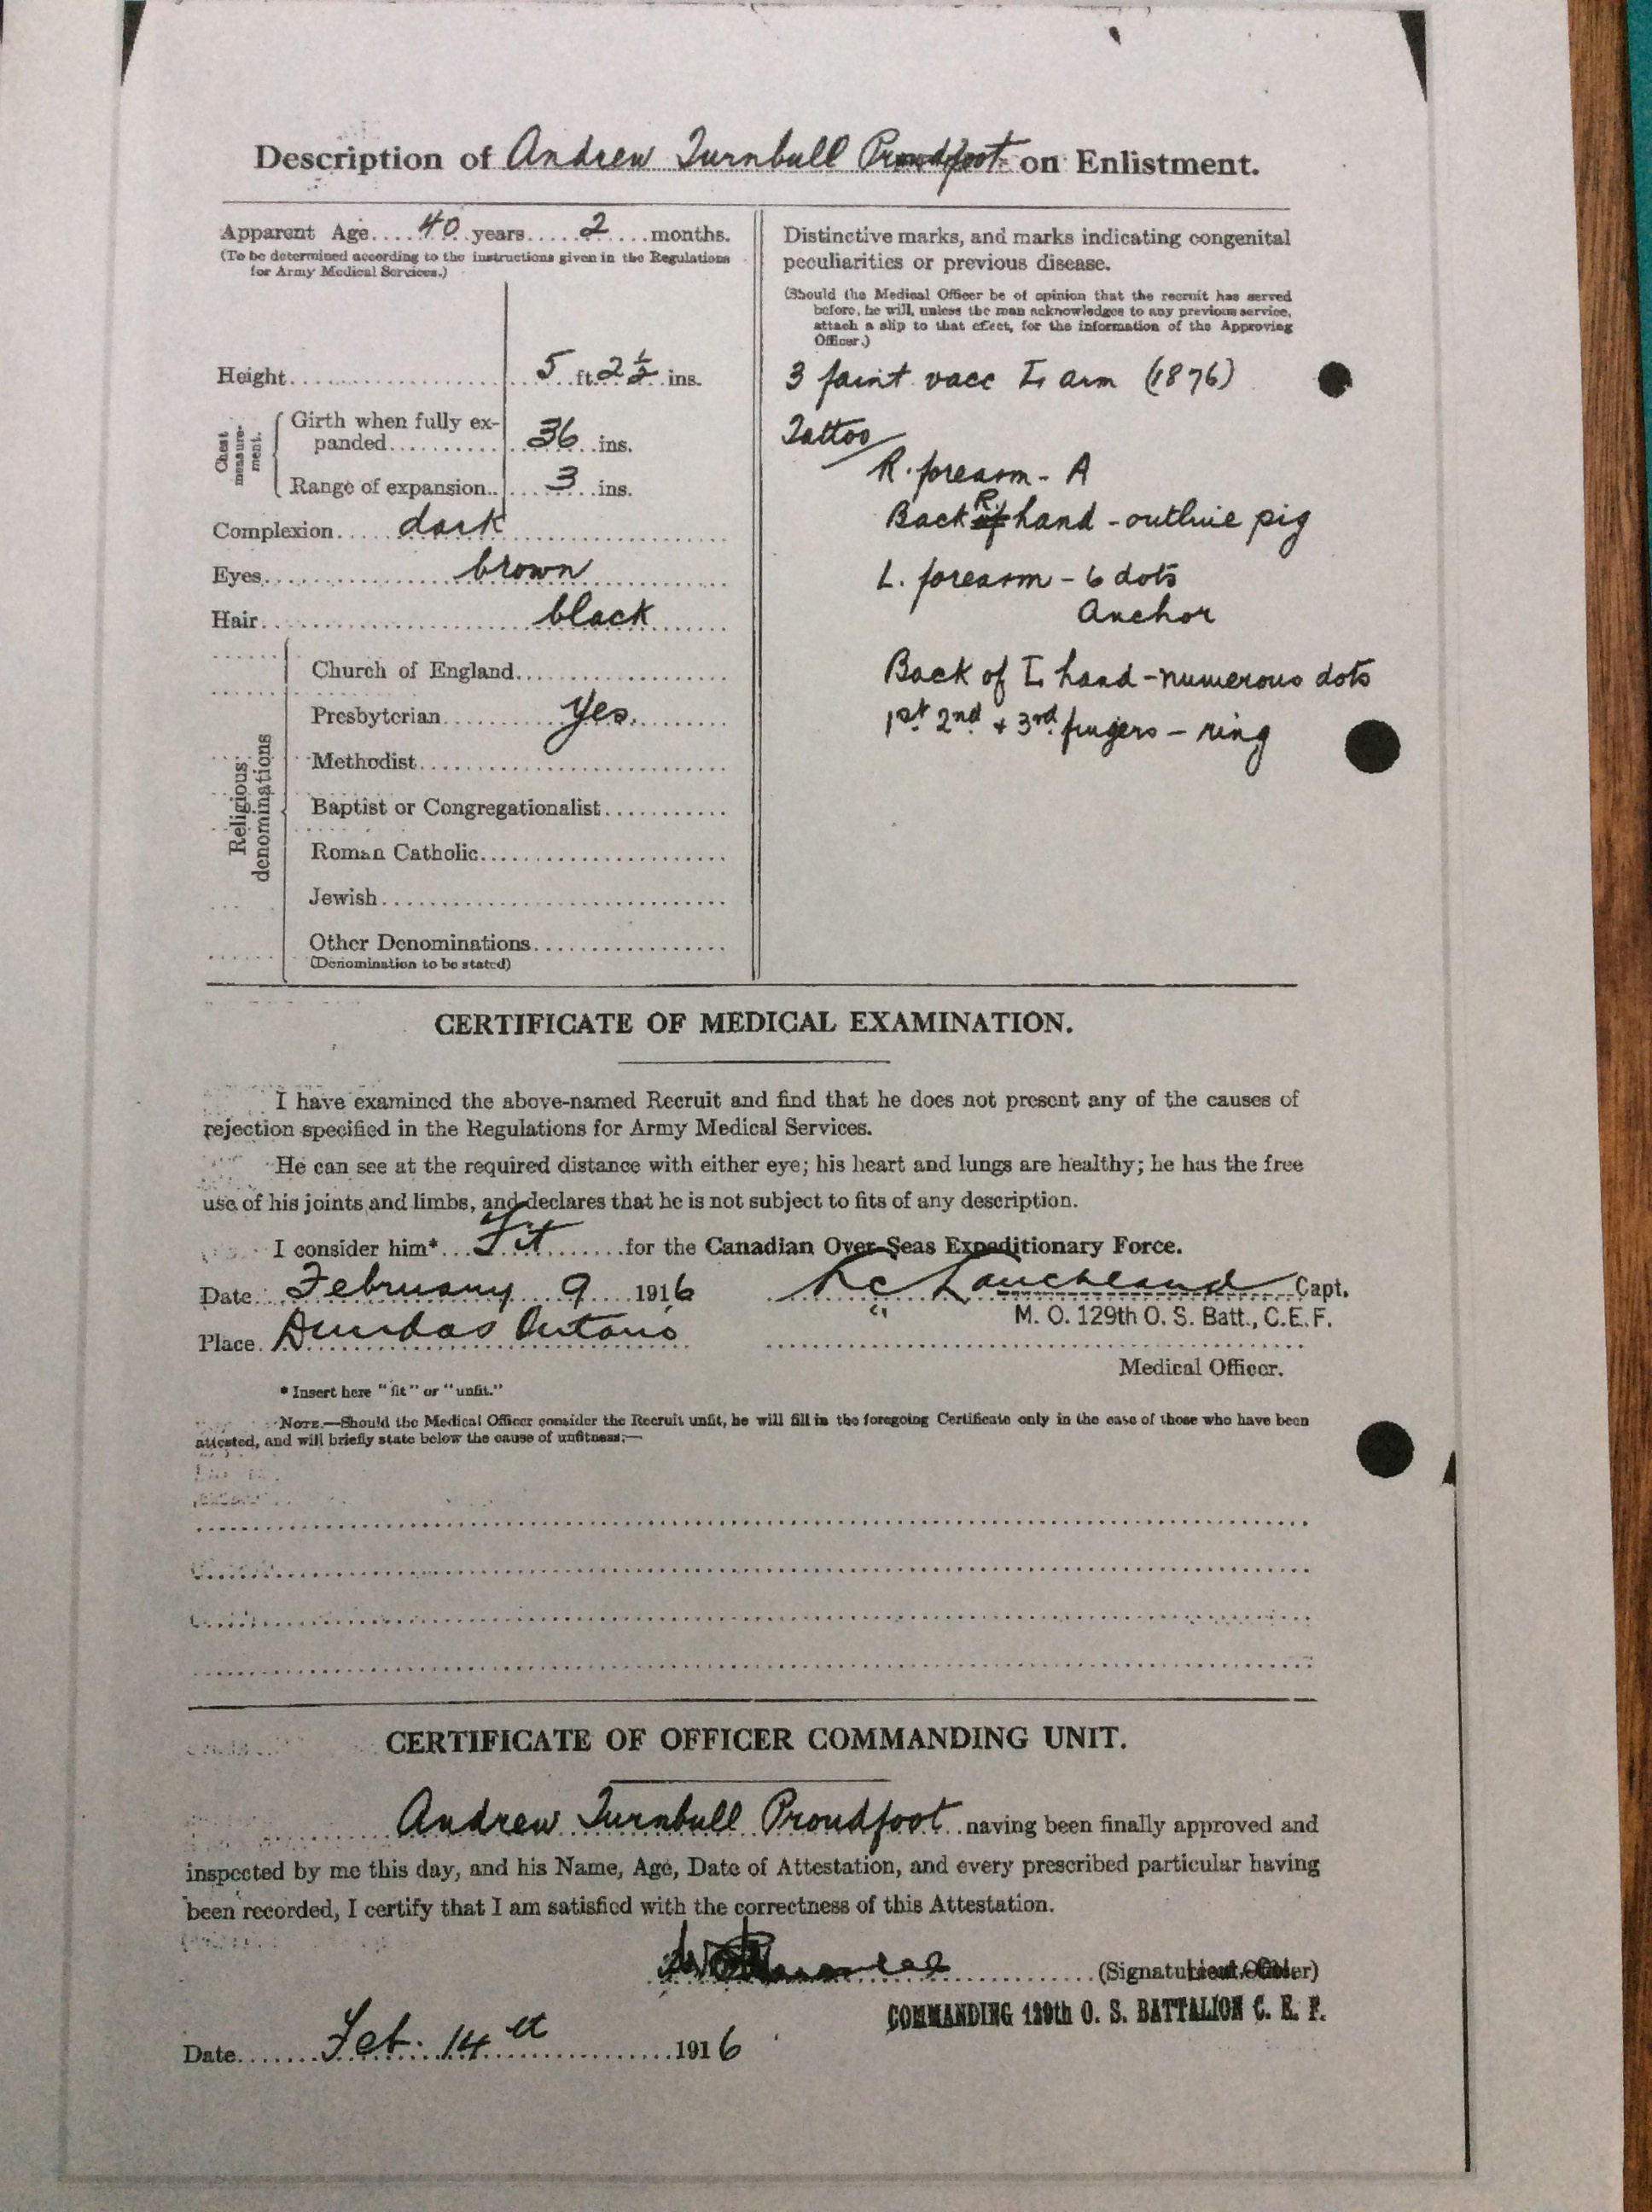 Description of Andrew Turnbull Proudfoot on Enlistment.
Apparent Age....40..years.....2....months.
(To be determined according to the instructions given in the Regulations
for Army Medical Services.)
Height..........5..ft.2½ ins.
Chest measurement.
Girth when fully ex-
panded..........36..ins.
Range of expansion......3...ins.
Complexion.....dark
Eyes..........brown
Hair..........black
Religious denominations
Church of England..........
Presbyterian..........Yes.
Methodist..........
Baptist or Congregationalist..........
Roman Catholic..........
Jewish..........
Other Denominations..........
(Denomination to be stated)
Distinctive marks, and marks indicating congenital
peculiarities or previous disease.
(Should the Medical Officer be of opinion that the recruit has served
before, he will, unless the man acknowledges to any previous service,
attach a slip to that effect, for the information of the Approving
Officer.)
3 faint vacc L arm (1876)
Tattoo
R. forearm - A
Back R hand - outline pig
L. forearm - 6 dots
Anchor
Back of L hand - numerous dots
1st 2nd + 3rd fingers - ring
CERTIFICATE OF MEDICAL EXAMINATION.
I have examined the above-named Recruit and find that he does not present any of the causes of
rejection specified in the Regulations for Army Medical Services.
He can see at the required distance with either eye; his heart and lungs are healthy; he has the free
use of his joints and limbs, and declares that he is not subject to fits of any description.
I consider him*...Fit.......for the Canadian Over-Seas Expeditionary Force.
Date...February...9....1916
Capt.
M. O. 129th O. S. Batt., C.E.F.
Place.Dundas Ontario
Medical Officer.
* Insert here "fit" or "unfit."
NOTE.—Should the Medical Officer consider the Recruit unfit, he will fill in the foregoing Certificate only in the case of those who have been
attested, and will briefly state below the cause of unfitness:—
CERTIFICATE OF OFFICER COMMANDING UNIT.
Andrew Turnbull Proudfoot...having been finally approved and
inspected by me this day, and his Name, Age, Date of Attestation, and every prescribed particular having
been recorded, I certify that I am satisfied with the correctness of this Attestation.
COMMANDING 129th O. S. BATTALION C. E. F.
Date.......Feb. 14th..........1916